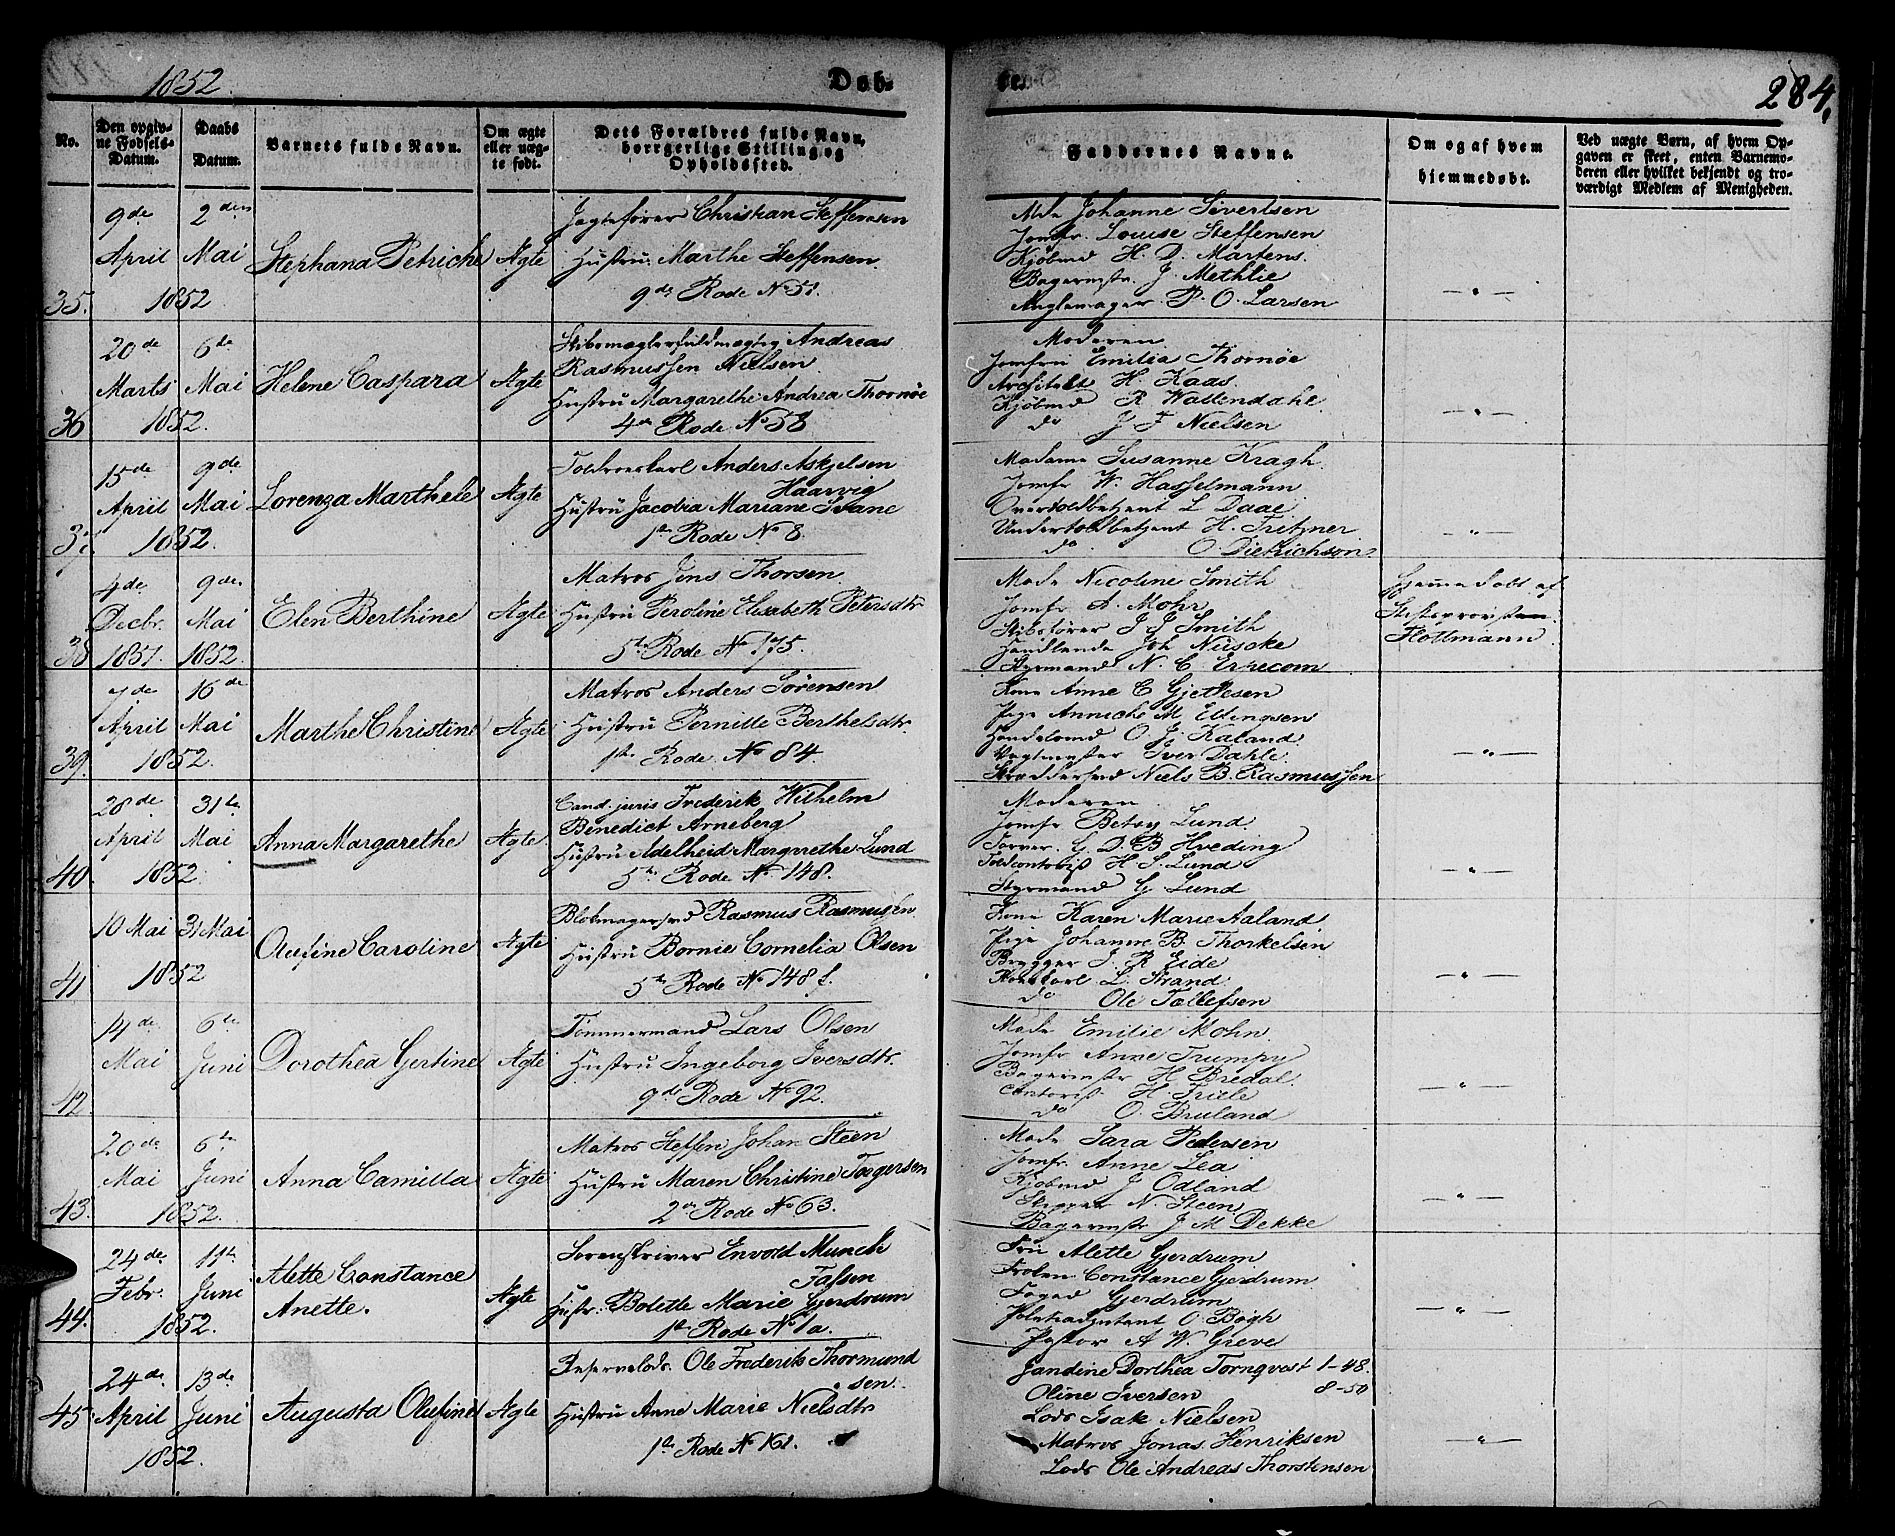 1852.
Døb-
te.
284.
No.
Den opgiv-
ne Fødsels-
Datum.
Daabs
Datum.
Barnets fulde Navn.
Om ægte
eller uæg-
te født.
Dets Forældres fulde Navn,
borgerlige Stilling og
Opholdssted.
Faddernes Navne.
Om og af hvem
hjemmedøbt.
Ved uægte Børn, af hvem Op-
gaven er skeet, enten Barnemo-
deren eller hvilket bekjendt og tro-
værdigt Medlem af Menigheden.
35.
9de April
2den Mai
1852
Stephana Petriche
Ægte
Jagtefører Christian Steffensen
Hustru Marthe Steffensen.
9de Rode No 51.
Mde Johanne Sivertsen
Jomfr. Louise Steffensen
Kjøbmd H. D. Martens.
Bagermstr. J. Methlie
P. O. Larsen
— " —
36
20de Marts
6te Mai
1852.
Helene Caspara
Ægte
Skibsmæglerfuldmægtig Andreas
Rasmussen Nielsen.
Hustru Margarethe Andrea Thornøe
4de Rode No 58
Moderen
Jomfru Emilia Thornøe
Architekt H. Kaas.
Kjøbmd R Wallendahl.
do J F Nielsen
— " —
37
15de April
9de Mai
1852.
Lorenza Marthele
Ægte
Toldroerkarl Anders Askjelsen
Haarvig
Hustru Jacobia Mariane Svane
1te Rode No 8.
Madame Susanne Kragh.
Jomfr W. Hasselmann
Overtoldbetjent L Daae
Undertoldbetjent H. Fritzner
do O Dietrichson
— " —
38
4de Decbr. 1851.
9de Mai 1852.
Elen Berthine
Ægte
Matros Jens Thorsen.
Hustru Peroline Elisabeth Petersdtr
5te Rode No 175.
Made Nicoline Smith
Jomfr A. Mohr
Skibsfører J J Smith
Handlende Joh Nüscke
Styrmand N. C.
Hjemmedøbt af
Stiftsprovst
Flottmann
39.
7de April
16de Mai
1852.
Marthe Christine
Ægte
Matros Anders Sørensen
Hustru Pernille Berthelsdtr.
1te Rode No 84.
Kone Anne C Gjertsen
Pige Anniche M. Ellingsen
Handelsmd O. J. Kaland.
Vægtmester Iver Dahle
Skrædersvd Niels B. Rasmussen
— " —
40.
28de April
31te Mai
1852.
Anna Margarethe
Ægte
Cand. juris Frederik Wilhelm
Benedict Arneberg
Hustru Adelheid Margrethe Lund
5te Rode No 148.
Moderen
Jomfr Betsy Lund.
G. D. B Hveding
Toldcontrollør H. S. Lund
Styrmand G Lund
— " —
41
10 Mai
31 Mai
1852
Olufine Caroline
Ægte
Blokmagersvd Rasmus Rasmussen
Hustru Bornie Cornelia Olsen
5te Rode No 148 f.
Kone Karen Marie Aaland
Pige Johanne B Thorkelsen
Brygger J. R Eide
L. Strand
do Ole Tollefsen
— " —
42
14de Mai
6te Juni
Dorothea Gertine
Ægte
Tømmermand Lars Olsen
Hustru Ingeborg Iversdtr.
9de Rode No 92.
Made Emilie Mohn.
Jomfr Anne Trumpy
Bagermstr H Bredal.
Contorist H. Friele
do O. Bruland
— " —
43.
20de Mai
6te Juni
1852.
Anna Camilla
Ægte
Matros Steffen Johan Steen
Hustru Maren Christine Tægersen
2den Rode No 63.
Made Sara Pedersen
Jomfr. Anne Lea
Kjøbmd J Odland
Skipper N. Steen
Bagermstr J M Dekke
— " —
44.
24de Febr.
11te Juni
1852.
Alette Constance
Anette.
Ægte
Sorenskriver Envold Munch
Falsen
Hustr. Bolette Marie Gjerdrum
1te Rode No 1a.
Fru Alette Gjerdrum
Frøken Constance Gjerdrum
Foged Gjerdrum
Politiadjutant O Bøgh
Pastor A W Greve
— " —
45.
24de April
13de Juni
1852.
Augusta Olufine
Ægte
Reservelods. Ole Frederik Thormund
sen.
Hustru Anne Marie Nielsdtr
1te Rode No 162.
Jandine Dorthea Tornqvast 1-48.
Oline Iversen 8-50
Lods Isak Nielsen
Matros Jonas Henriksen
Lods Ole Andreas Thorstensen
— " —